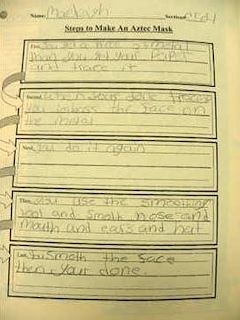 Name: Section:
Steps to Make An Aztec Mask
First, you get a piece of metal
then you get your paper
and trace it
Second, when your done tracing
you emboss the face on
the metal
Next, you do it again
Then, you use the smoothing
tool and smoth nose and
mouth and ears and hat
Last, you smoth the face
then your done.